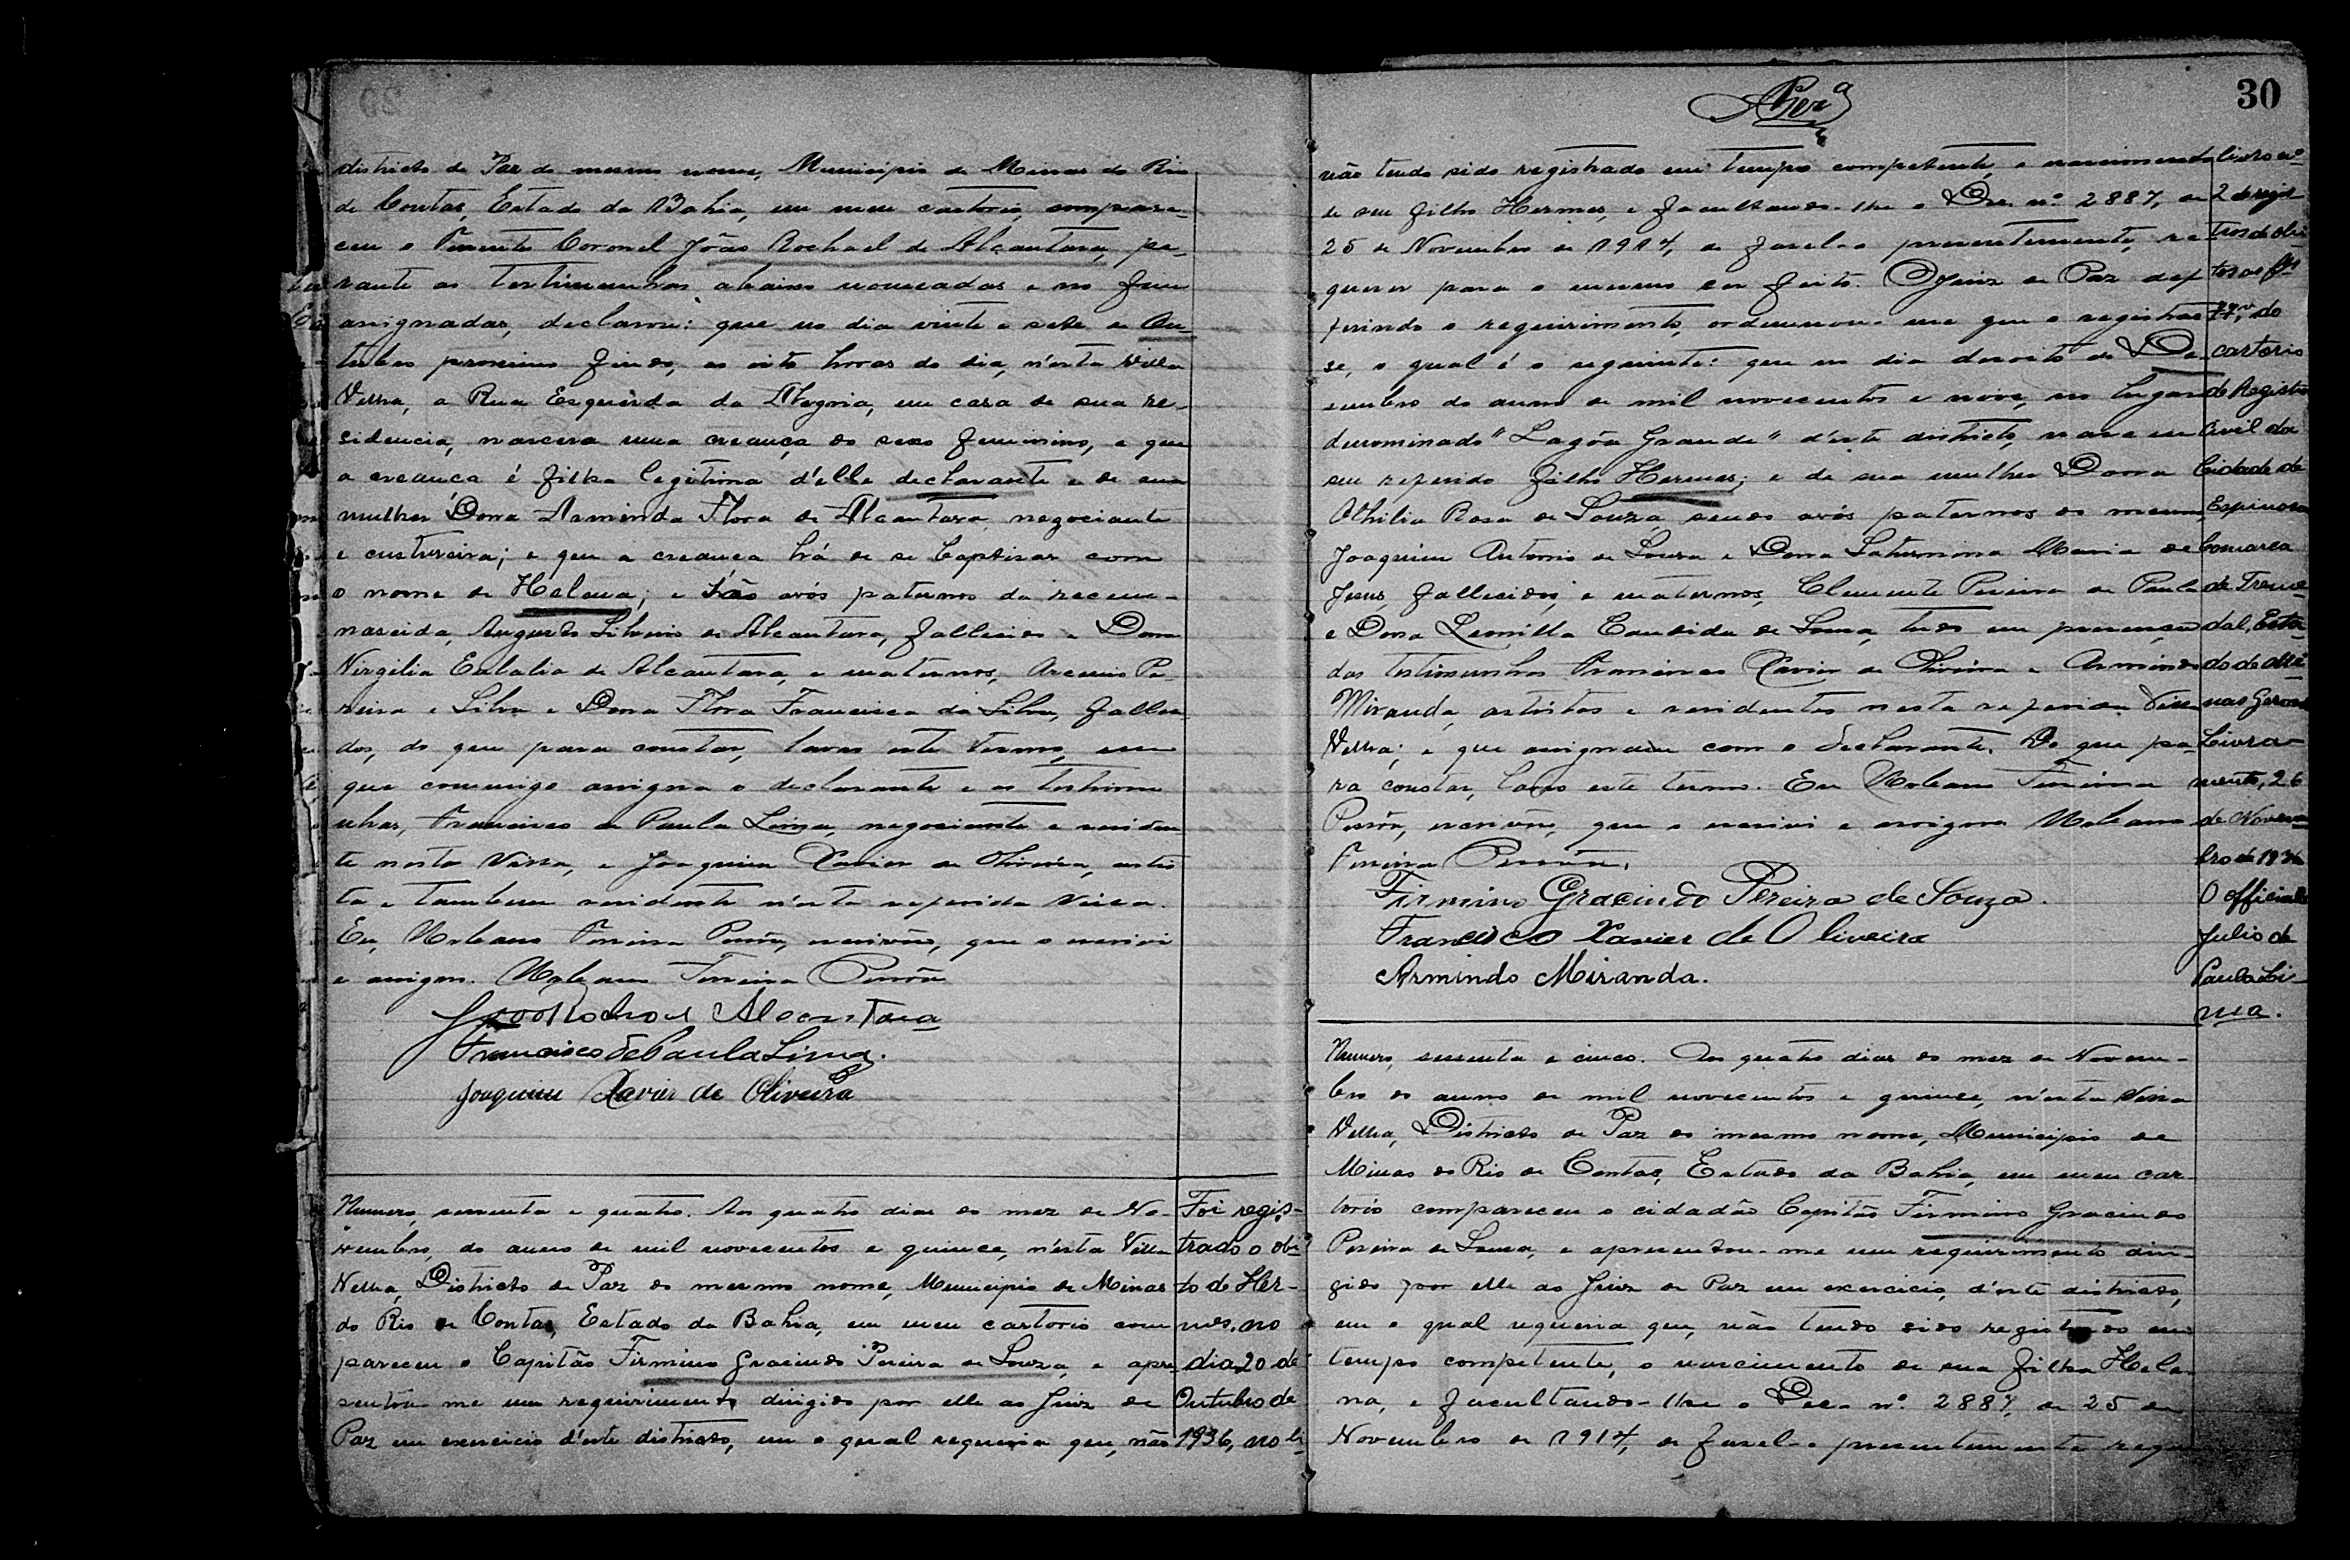 districto de Paz do mesmo nome, Municipio de Minas do Rio
de Contas, Estado da Bahia, em meu cartorio, compare-
ceu o Tenente Coronel João Rochael de Alcantara, pe-
rante as testimunhas abaixo nomeadas e no fim
assignadas, declarou: que no dia vinte e sete de Ou-
tubro proximo findo, as oito horas do dia, n'esta Villa
Velha, a Rua Esquerda da Alegria, em casa de sua re-
sidencia, nascera uma creança do sexo feminino, e que
a creança é filha legitima d'elle declarante e de sua
mulher Dona Arminda Flora de Alcantara, negociante
e custureira; e que a creança há de se baptisar com
o nome de Helena; e são avós paternos da recem-
nascida, Augusto Silvino de Alcantara, fallecido e Dona
Virgilia Eulalia de Alcantara, e maternos, Arcenio Pe-
reira e Silva e Dona Flora Francisca da Silva, falleci
dos, do que para constar, lavro este termo, em
que commigo assigna o declarante e as testimu
nhas, Francisco de Paula Lima, negociante e residen
te nesta Villa, e Joaquim Xavier de Oliveira, artis
ta e tambem residente n'esta referida Villa.
Eu, Ferreira escrivão, que o escrivi
e assigno. Ferreira
João Rochael Alcantara
Francisco de Paula Lima.
Joaquim Xavier de Oliveira
Numero, sessenta e quatro. Aos quatro dias do mez de No-
vembro, do anno de mil novecentos e quince, n'esta Villa
Velha, Districto de Paz do mesmo nome, Municipio de Minas
do Rio de Contas, Estado da Bahia, em meu cartorio com
pareceu o Capitão Firmino Gracindo Pereira de Souza, e apre-
sentou-me um requirimento dirigido por elle ao Juiz de
Paz em exercicio d'este districto, em o qual requeria que, não
Foi regis-
trado o obi-
to de Her-
mes, no
dia 20 de
Outubro de
1936, no li-
30
não tendo sido registrado em tempo competente, o nascimento
de seu filho Hermes, e facultando-lhe o Dec. nº 2887, de
25 de Novembro de 1914, de fasel-o presentemente, re-
querer para o mesmo ser feito. O Juiz de Paz def
ferindo o requirimento, ordennou-me que o registras
se, o qual é o seguinte: que no dia desoito de De-
sembro do anno de mil novecentos e nove, no lugar
denominado "Lagôa Grande" d'este districto, nasceu
seu referido filho Hermes; e de sua mulher Dona
Othilia Rosa de Souza, sendo avós paternos do mesmo,
Joaquim Antonio de Souza e Dona Saturnina Maria de
Jesus, fallecidos, e maternos, Clemente Pereira de Paula
e Dona Leonilla Candida de Souza, tudo em presença
das testimunhas Francisco Xavier de Oliveira e Armindo
Miranda, artistas e residentes nesta referida Villa
Velha; e que assignam com o declarante. Do que pa-
ra constar, lavro este termo. Eu Ferreira
escrivão, que o escrivi e assigno
Ferreira
Firmino Gracindo Pereira de Souza.
Francisco Xavier de Oliveira
Armindo Miranda.
livro nº
2 de regis-
tros de obi-
tos as fls
77v, do
cartorio
de Registro
Civil da
Cidade de
Espinosa
Comarca
de Treme-
dal, Esta-
do de Mi-
nas Geraes
Livra-
mento, 26
de Novem-
bro de 1936
O official
Julio de
Paula Li-
ma.
Numero, sessenta e cinco. Aos quatro dias do mez de Novem-
bro do anno de mil novecentos e quince, n'esta Villa
Velha, Districto de Paz do mesmo nome, Municipio de
Minas do Rio de Contas, Estado da Bahia, em meu car-
torio compareceu o cidadão Capitão Firmino Gracindo
Pereira de Souza, e apresentou-me um requirimento diri-
gido por elle ao Juiz de Paz em exercicio, d'este districto,
em o qual requeria que, não tendo sido registrado em
tempo competente, o nascimento de sua filha Hele-
na, e facultando-lhe o Dec. nº 2887, de 25 de
Novembro de 1914, de fasel-o presentemente reque